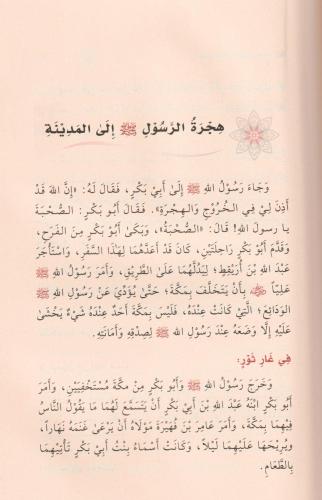 هِجْرَةُ الرَّسُوْلِ ﷺ إِلَىٰ المَدِيْنَةِ
وَجَاءَ رَسُوْلُ اللهِ ﷺ إِلَىٰ أَبِيْ بَكْرٍ، فَقَالَ لَهُ: «إِنَّ اللهَ قَدْ
أَذِنَ لِيْ فِي الْخُرُوْجِ وَالْهِجْرَةِ». فَقَالَ أَبُوْ بَكْرٍ: الصُّحْبَةَ
يا رسولَ اللهِ! قَالَ: «الصُّحْبَةُ»، وَبَكَىٰ أَبُوْ بَكْرٍ مِنَ الْفَرَحِ،
وَقَدَّمَ أَبُوْ بَكْرٍ رَاحِلَتَيْنِ، كَانَ قَدْ أَعَدَّهُمَا لِهٰذَا السَّفَرِ، وَاسْتَأْجَرَ
عَبْدَ اللهِ بْنَ أُرَيْقِطٍ؛ لِيَدُلَّهُمَا عَلَىٰ الطَّرِيْقِ، وَأَمَرَ رَسُوْلُ اللهِ ﷺ
عَلِيّاً ﷺ بِأَنْ يَتَخَلَّفَ بِمَكَّةَ؛ حَتَّىٰ يُؤَدِّيَ عَنْ رَسُوْلِ اللهِ ﷺ
الْوَدَائِعَ؛ الَّتِيْ كَانَتْ عِنْدَهُ، فَلَيْسَ بِمَكَّةَ أَحَدٌ عِنْدَهُ شَيْءٌ يَخْشَىٰ
عَلَيْهِ إِلَّا وَضَعَهُ عِنْدَ رَسُوْلِ اللهِ ﷺ لِصِدْقِهِ وَأَمَانَتِهِ.
فِيْ غَارِ ثَوْرٍ:
وَخَرَجَ رَسُوْلُ اللهِ ﷺ وَأَبُوْ بَكْرٍ مِنْ مَكَّةَ مُسْتَخْفِيَيْنِ، وَأَمَرَ
أَبُوْ بَكْرٍ ابْنَهُ عَبْدَ اللهِ بْنَ أَبِيْ بَكْرٍ أَنْ يَتَسَمَّعَ لَهُمَا مَا يَقُوْلُ النَّاسُ
فِيْهِمَا بِمَكَّةَ، وَأَمَرَ عَامِرَ بْنَ فُهَيْرَةَ مَوْلَاهُ أَنْ يَرْعَىٰ غَنَمَهُ نَهَاراً،
وَيُرِيْحَهَا عَلَيْهِمَا لَيْلاً، وَكَانَتْ أَسْمَاءُ بِنْتُ أَبِيْ بَكْرٍ تَأْتِيْهِمَا
بِالطَّعَامِ.